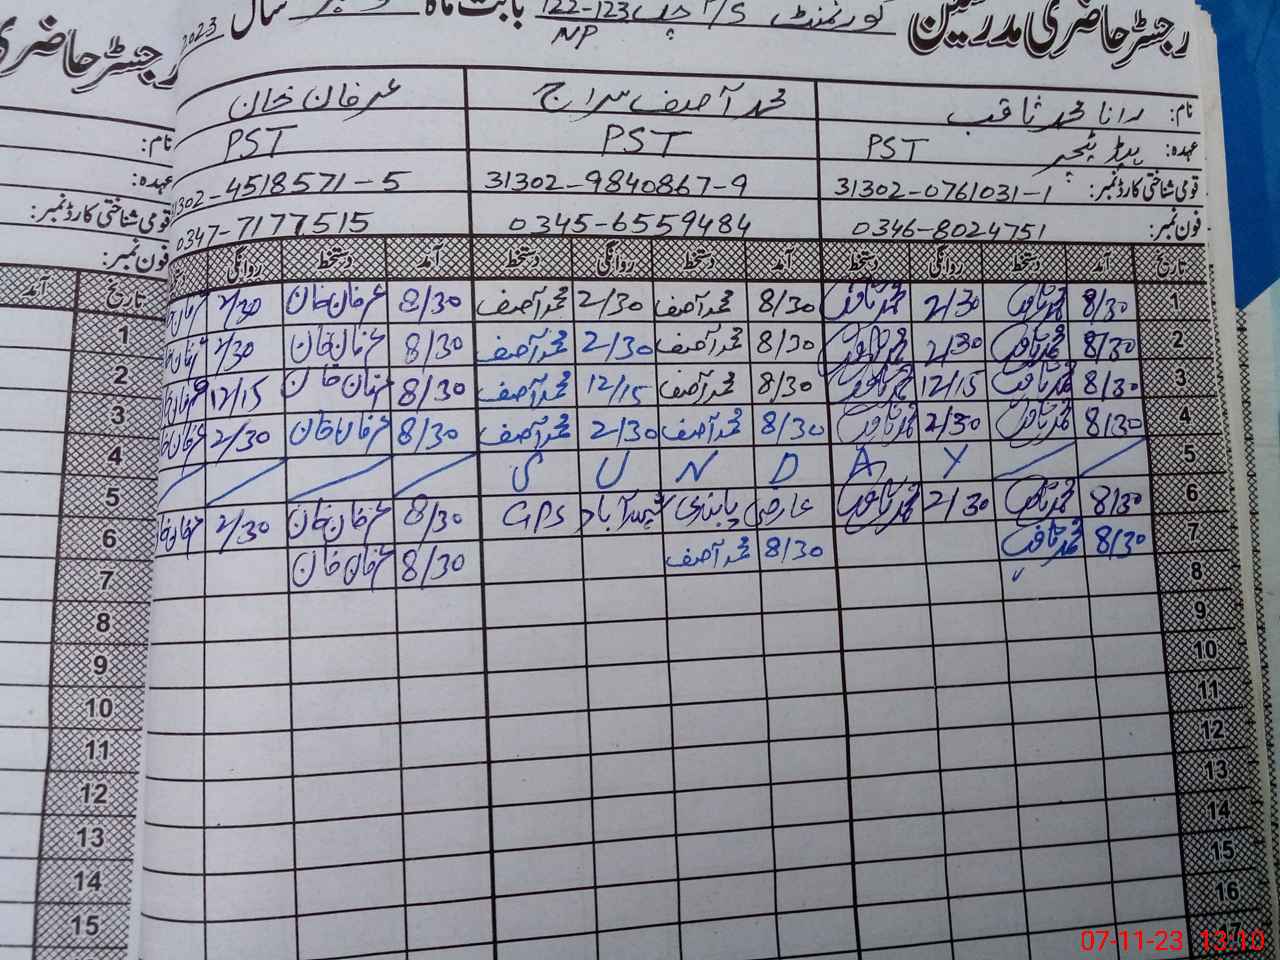 رجسٹر حاضری مدرسین گورنمنٹ P/S چک 122-123 بابت ماہ نومبر سال 2023
NP
رجسٹر حاضری
نام: رانا محمد ثاقب محمد آصف سراج عرفان خان
عہدہ: ہیڈ ٹیچر PST PST PST
قومی شناختی کارڈ نمبر: 31302-0761031-1 31302-9840867-9 31302-4518571-5
فون نمبر: 0346-8024751 0345-6559484 0347-7177515
نام:
عہدہ:
قومی شناختی کارڈ نمبر:
فون نمبر:
تاریخ آمد دستخط روانگی دستخط آمد دستخط روانگی دستخط آمد دستخط روانگی
1 8/30 محمد ثاقب 2/30 محمد ثاقب 8/30 محمد آصف 2/30 محمد آصف 8/30 عرفان خان 2/30 عرفان خان
2 8/30 محمد ثاقب 2/30 محمد ثاقب 8/30 محمد آصف 2/30 محمد آصف 8/30 عرفان خان 2/30 عرفان خان
3 8/30 محمد ثاقب 12/15 محمد ثاقب 8/30 محمد آصف 12/15 محمد آصف 8/30 عرفان خان 12/15 عرفان خان
4 8/30 محمد ثاقب 2/30 محمد ثاقب 8/30 محمد آصف 2/30 محمد آصف 8/30 عرفان خان 2/30 عرفان خان
5 S U N D A Y
6 8/30 محمد ثاقب 2/30 محمد ثاقب عارضی پابندی GPS 8/30 عرفان خان 2/30 عرفان خان
7 8/30 محمد ثاقب 8/30 محمد آصف 8/30 عرفان خان
8
9
10
11
12
13
14
15
16
17
تاریخ آمد
1
2
3
4
5
6
7
8
9
10
11
12
13
14
15
07-11-23 13:10